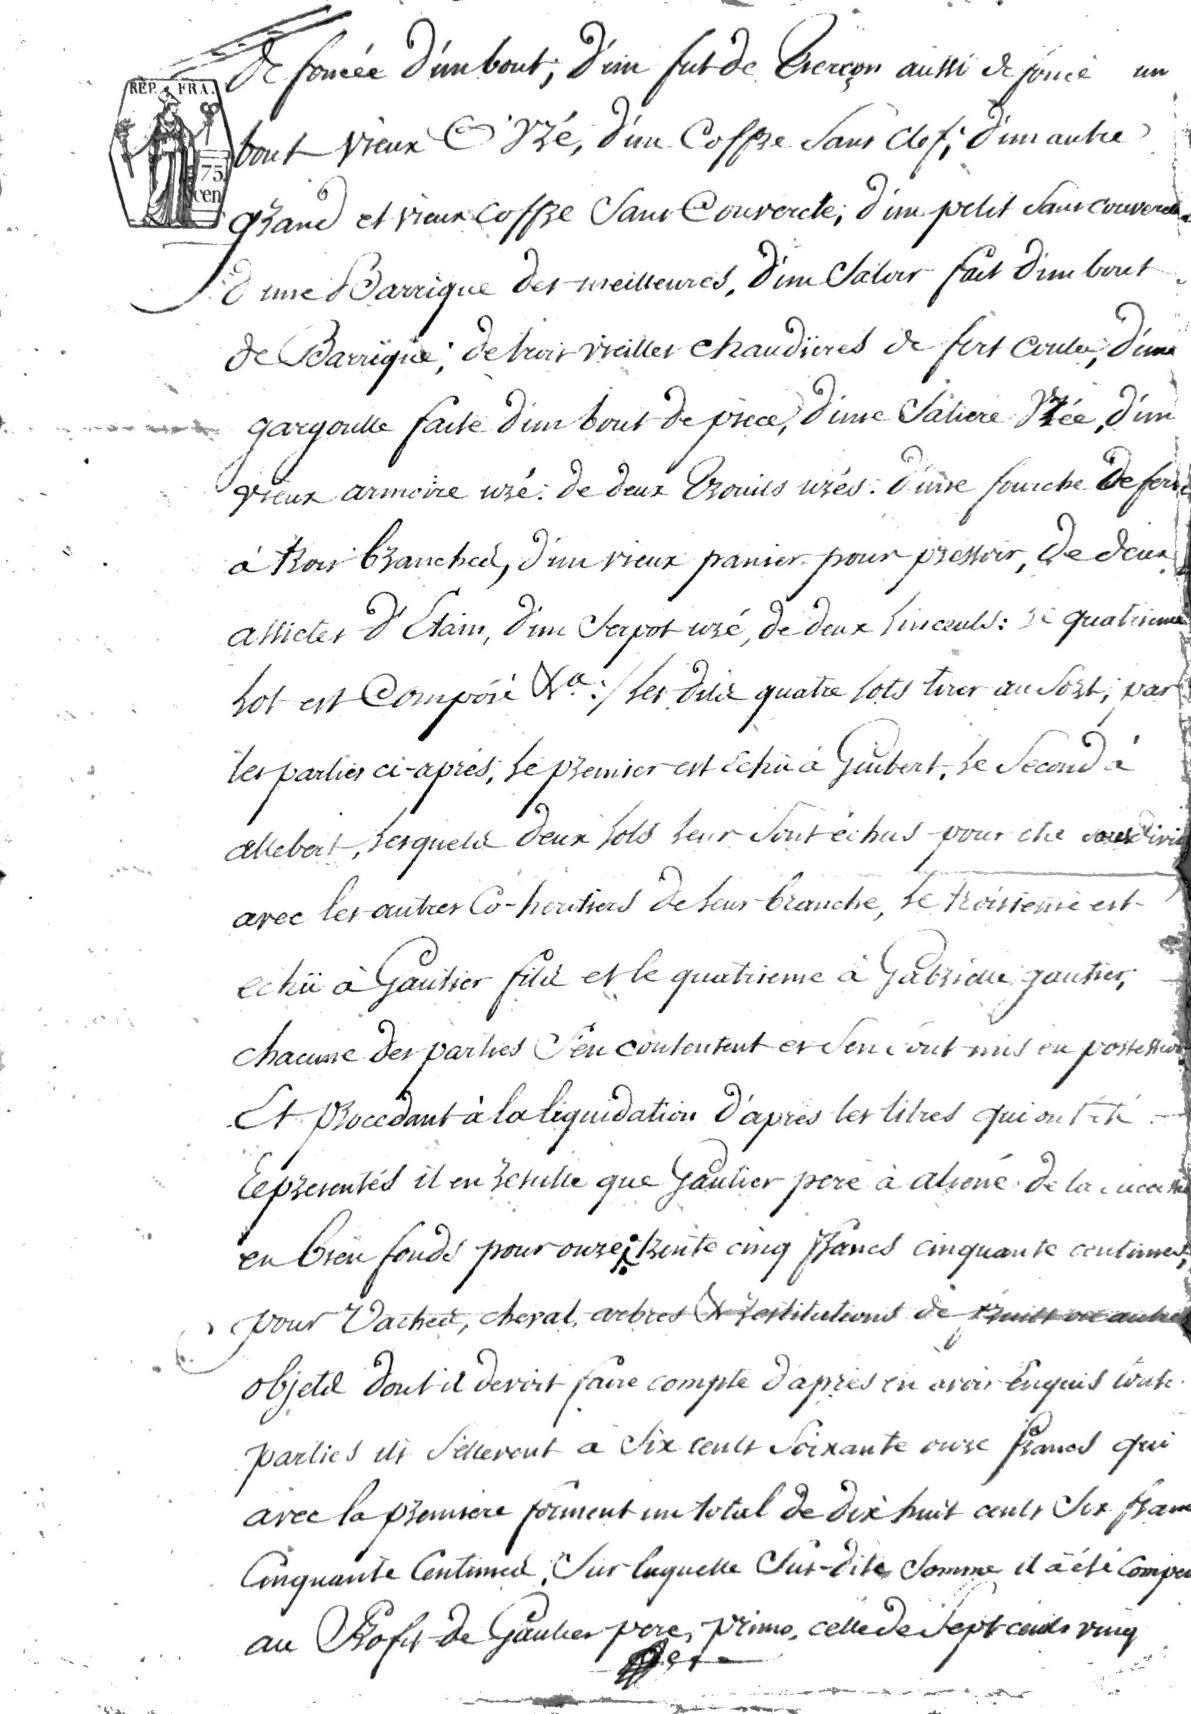 REP. FRA.
75
cen
de foncée d'un bout; d'un fut de tierçon aussi defoncé un
bout vieux & Uzé, d'un Coffre Sans clef; d'un autre
grand et vieux Coffre Sans Couvercle; d'un petit Sans couvercle
d'une Barrique des meilleures, d'un Saloir fait d'un bout
de Barrique; de trois vieilles chaudieres de fert coulé, d'une
gargoulle faite d'un bout de piece, d'une Saliere Uzée, d'un
vieux armoire uzé: de deux Trouils uzés: d'une fourche de fer
à trois branches, d'un vieux panier pour pressoir, de deux
assietes d'Etain, d'un Serpot uzé, de deux linceuls: le quatrieme
Lot est Composé &a:/ les dits quatre lots tirer au Sort; par
les parties ci-aprés, le premier est échü à Guibert, le Second à
allebert, lesquels deux lots leur Sont échus pour etre
avec les autres Co-heritiers de leur branche, le troisieme est
echü à Gautier fils et le quatrieme à Gabrielle gautier;
chacune des parties S'en contentent et S'en sont mis en possession
Et procedant à la liquidation d'aprés les titres qui ont été
représentés il en resulte que Gautier pere à aliéné de la
en bien fonds pour onze trente cinq francs cinquante centimes,
pour Vaches, cheval, arbres & restitutions de
objets dont il devoit faire compte d'aprés en avoir Enquis
parties ils S'ellevent a Six cents Soixante onze francs qui
avec la premiere forment un total de dix huit cents Six francs
Cinquante Centimes, Sur laquelle Sus-dite Somme il a été
au Profit de Gautier pere, primo, celle de Sept cents vingt